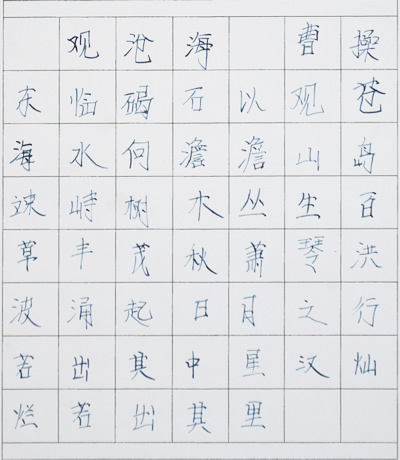 观沧海 曹操
东临碣石以观苍
海水何澹澹山岛
竦峙树木丛生百
草丰茂秋萧琴洪
波涌起日月之行
若出其中星汉灿
烂若出其里